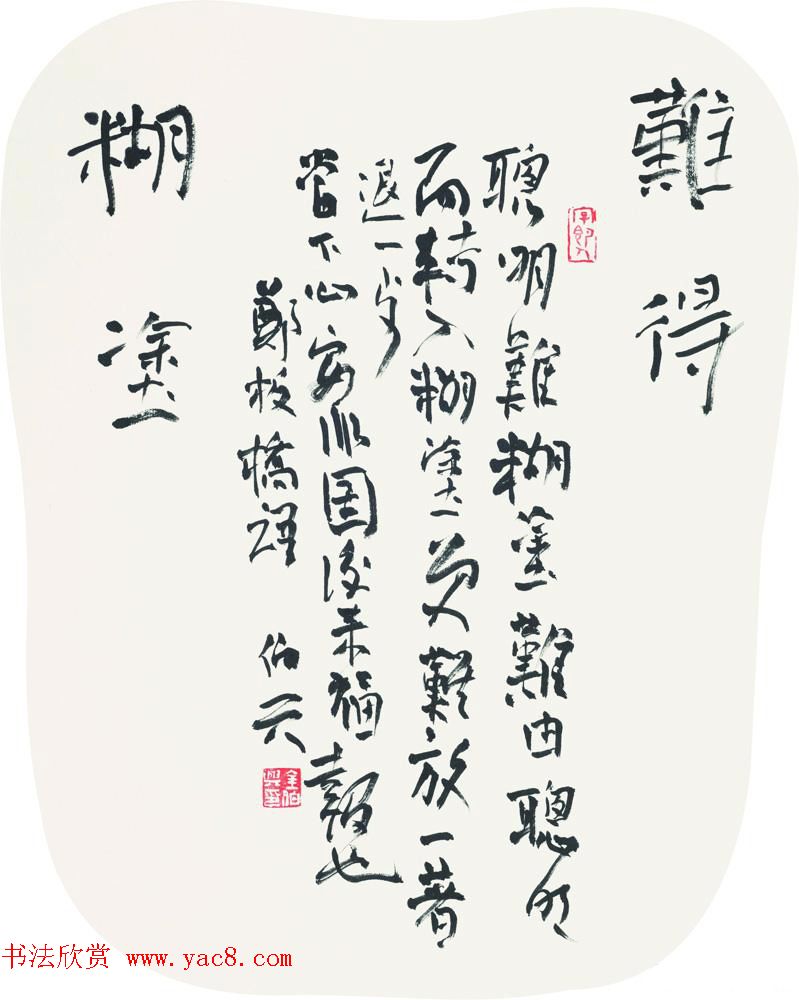 難得
聰明難糊塗難由聰明
而轉入糊塗更難放一著
退一步
當下心安非圖後來福報也
鄭板橋語
伯兴
糊塗
书法欣赏 www.yac8.com